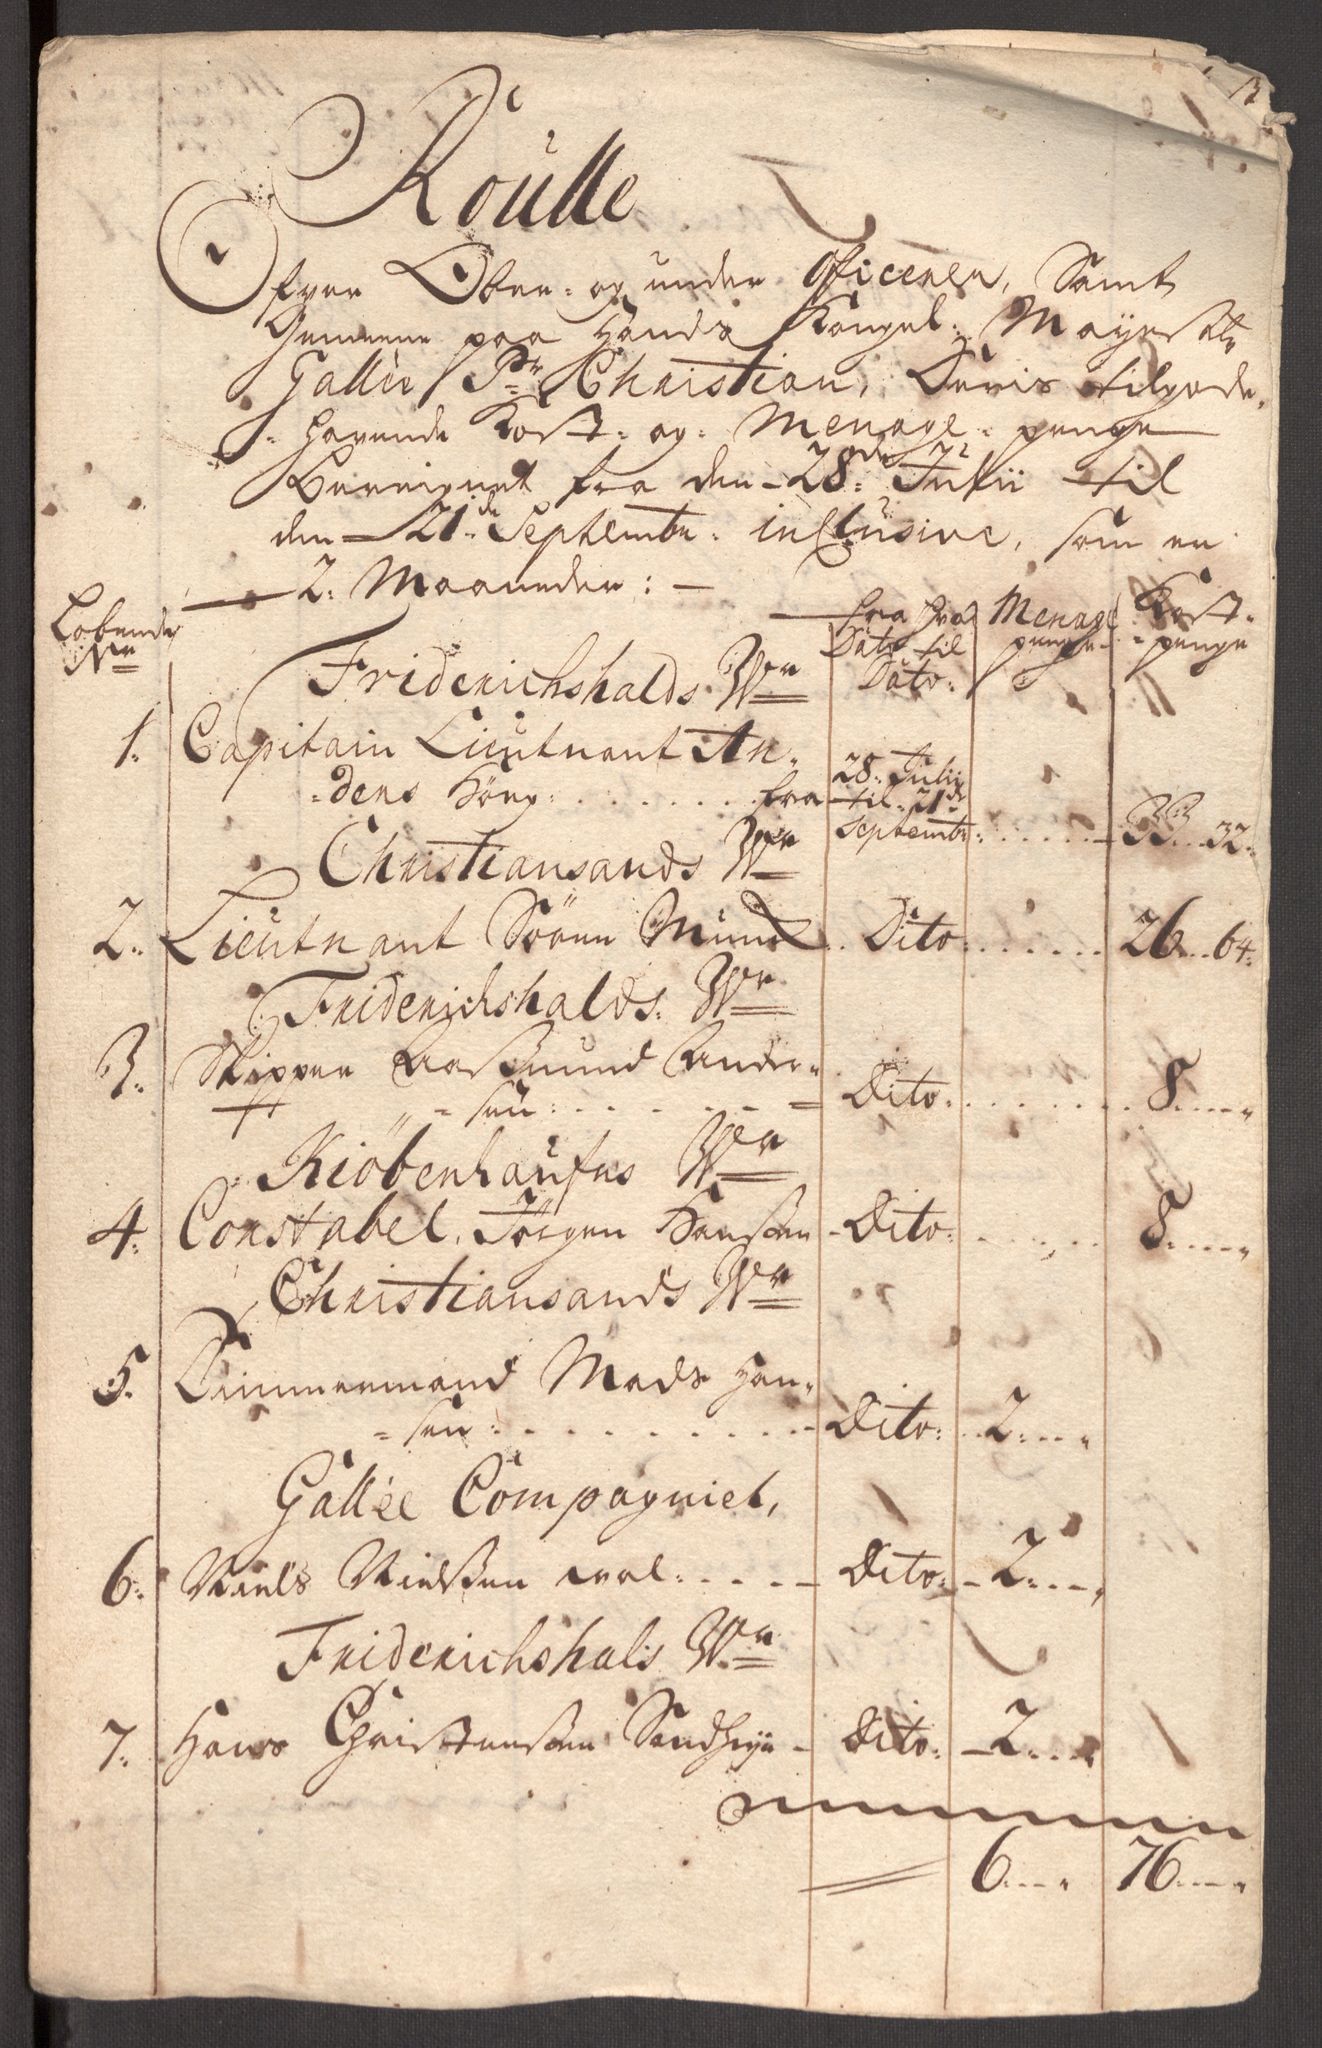 Roulle
Ofver Ober- og under Officerer, Samt
Gemeene paa Hands Kongel: Mayestts
Galléé Pr Christian, Deris tilgode
hafvende Kost- og Menage-penge
Bereignet fra den 28de Julii til
den 21de Septembr: inclusive, som er
2: Maaneder:
Løbende Nr
fra hvad Dato til Dato
Menage penge
Kost-penge
Friderichshalds Wrn
1. Capitain Lieutnant An-
dens Høng: fra 28: Julii til 21de Septembr: 33 32
Christiansands Wrn
2. Lieutnant Sören Munck Dito 26 64
Friderichshalds Wrn
3. Skipper Aasmund Ander-
sen Dito 8
Kiöbenhaufns Wrn
4. Constabel Jörgen Hanssen Dito 8
Christiansands Wrn
5. Timmermand Mads Han-
sen Dito 2
Gallée Compagniet,
6. Niels Nielssen Dito 2
Friderichshals Wrn
7. Hans Christenssen Dito 2
6 76